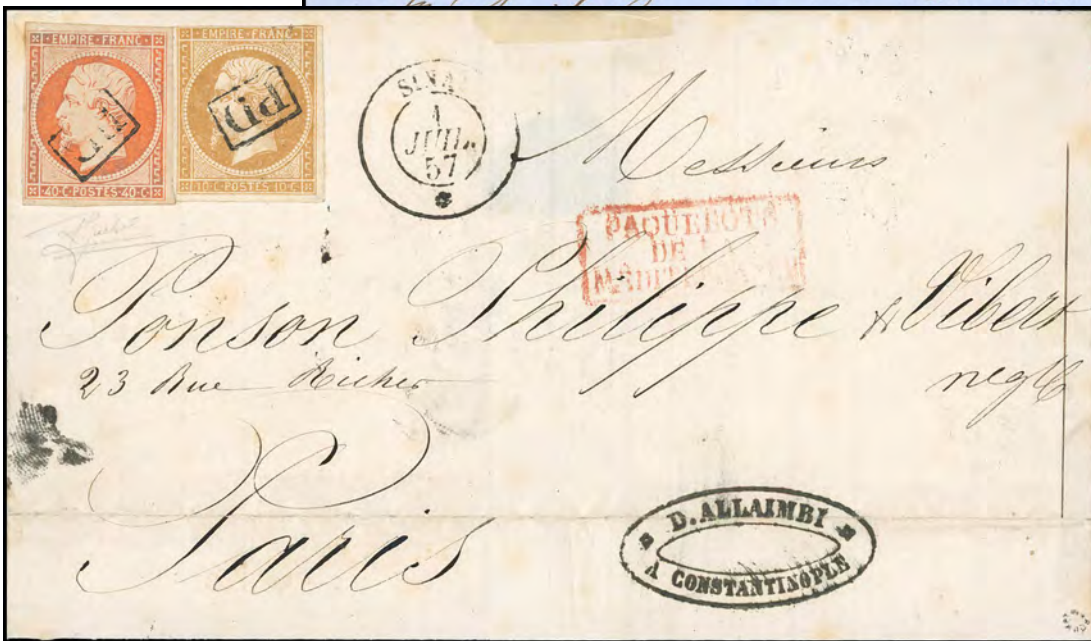 EMPIRE · FRANC ·
40 · C · POSTES · 40 · C
EMPIRE · FRANC ·
10 · C · POSTES · 10 · C
PD
SINA
1
JUIL.
57
Messieurs
PAQUEBOTS
DE
Ponson Philippe & Vibert
23 Rue Richer
negts
Paris
D. ALLAIMBI
A CONSTANTINOPLE